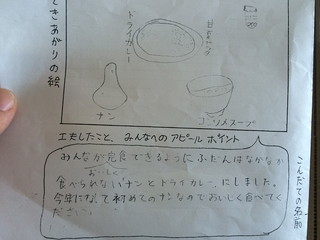 できあがりの絵
ドライカレー
ナン
コンソメスープ
工夫したこと、みんなへのアピールポイント
こんだての名前
みんなが完食できるようにふだんはなかなか
おいしく
食べられないナンとドライカレーにしました。
今年になって初めてのナンなのでおいしく食べてく
ださい。